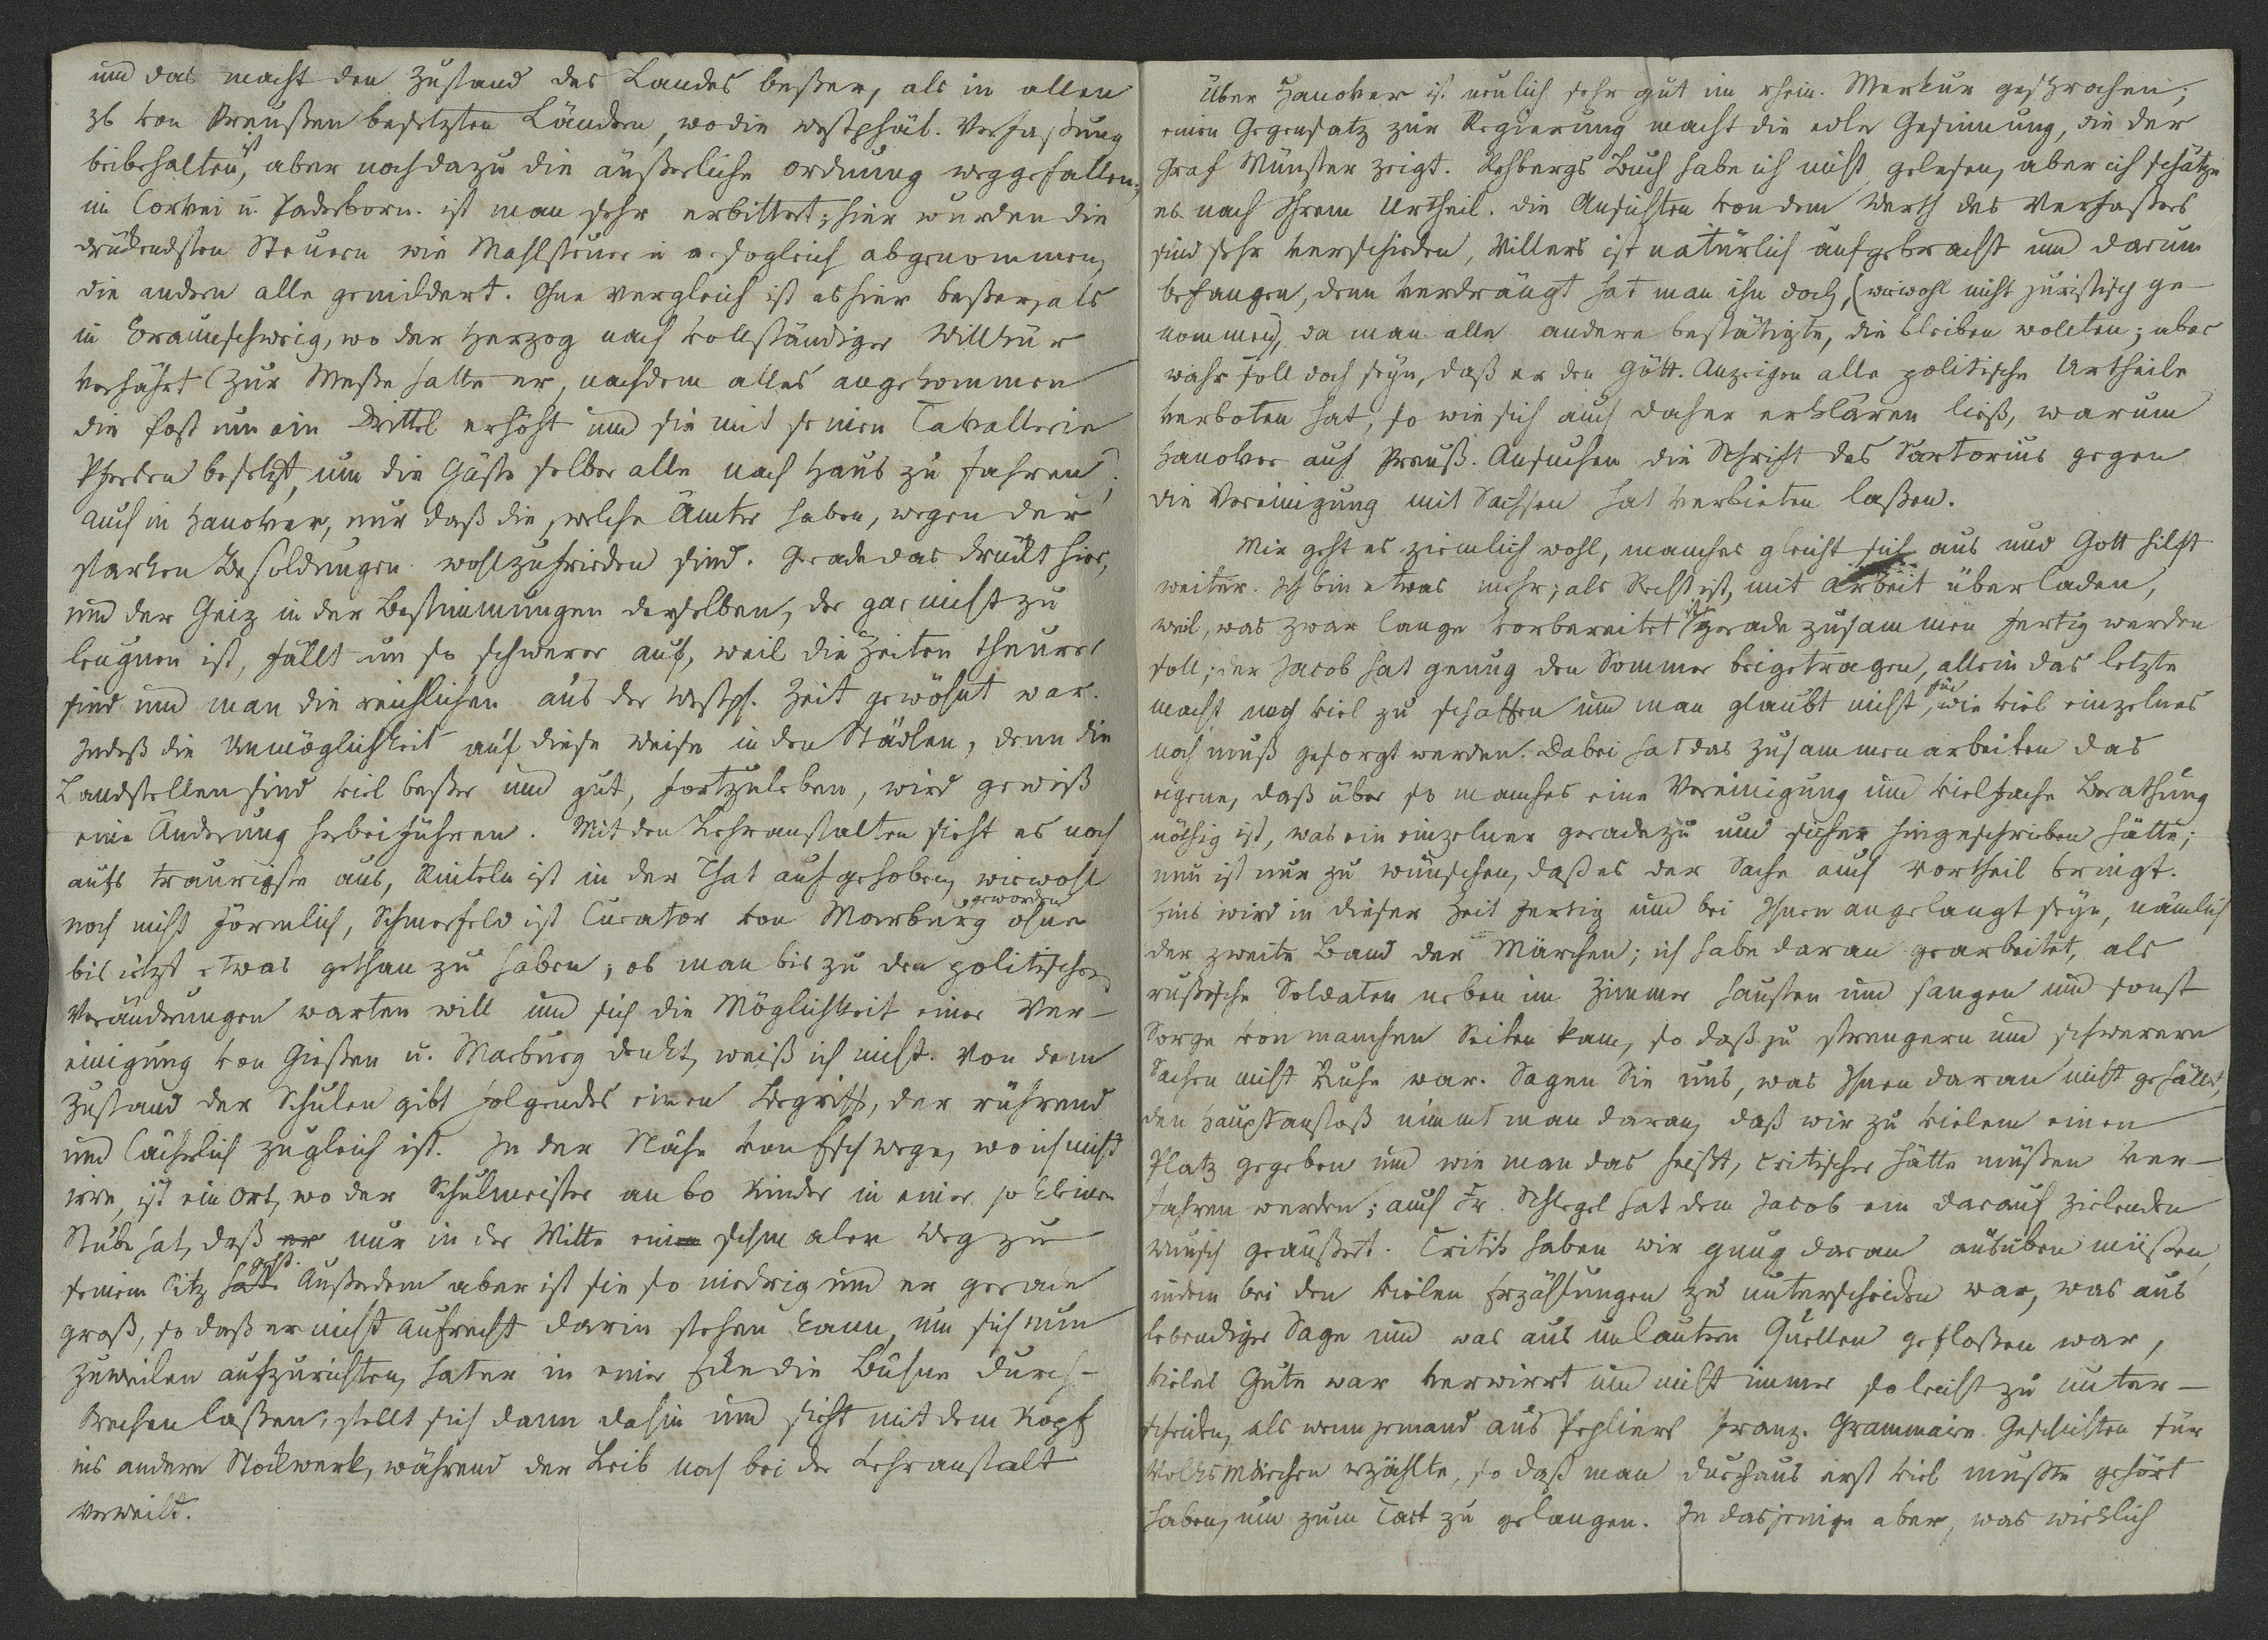 und das macht den Zustand des Landes beßer, als in allen
zb von Preußen besetzten Ländern, wo die westphäl. Verfaßung
beibehalten ist, aber noch dazu die äußerliche Ordnung weggefallen;
in Corvei u. Paderborn. ist man sehr erbittert; hier wurden die
drückendsten Steuern wie Mahlsteuer sogleich abgenommen,
die andern alle gemildert. Ohne Vergleich ist es hier beßer, als
in Braunschweig, wo der Herzog nach vollständiger Willkür
verfährt (zur Meße hatte er, nachdem alles angekommen
die Post um ein Drittel erhöht und sie mit seinen Cavallerie
Pferden besetzt, um die Gäste selber alle nach Haus zu fahren)
auch in Hanover, nur daß die, welche Ämter haben, wegen der
starken Besoldungen wohlzufrieden sind. Gerade das drückt hier,
und der Geiz in der Bestimmungen derselben, der gar nicht zu
leugnen ist, fällt um so schwerer auf, weil die Zeiten theurer
sind und man die reichlichen aus der westph. Zeit gewöhnt war.
Indeß die Unmöglichkeit auf diese Weise in den Städten, denn die
Landstellen sind viel beßer und gut, fortzuleben, wird gewiß
eine Änderung herbeiführen. Mit den Lehranstalten sieht es noch
aufs traurigste aus, Rinteln ist in der That aufgehoben, wiewohl
noch nicht förmlich, Schmerfeld ist Curator von Marburg geworden ohne
bis jetzt etwas gethan zu haben; ob man bis zu den politischen
Veränderungen warten will und sich die Möglichkeit einer Ver-
einigung von Gießen u. Marburg denkt, weiß ich nicht. Von dem
Zustand der Schulen gibt folgendes einen Begriff, der rührend
und lächerlich zugleich ist. In der Nähe von Eschwege, wo ich nicht
irre, ist ein Ort, wo der Schulmeister an 60 Kinder in einer so kleinen
Stube hat, daß er nur in der Mitte ein schmaler Weg zu
seinem Sitz geht. Außerdem aber ist sie so niedrig und er gerade
groß, so daß er nicht aufrecht darin stehen kann, um sich nun
zuweilen aufzurichten, hat er in einer Ecke die Bühne durch-
brechen laßen, stellt sich dann dahin und sieht mit dem Kopf
ins andere Stockwerk, während der Leib noch bei der Lehranstalt
verweilt.
Über Hanover ist neulich sehr gut im rhein. Merkur gesprochen;
einen Gegensatz zur Regierung macht die edle Gesinnung, die der
Graf Münster zeigt. Rehbergs Buch habe ich nicht gelesen, aber ich schätze
es nach Ihrem Urtheil. die Ansichten von dem Werth des Verfaßers
sind sehr verschieden, Villers ist natürlich aufgebracht und darum
befangen, denn verdrängt hat man ihn doch, (wiewohl nicht juristisch ge-
nommen), da man alle andere bestätigte, die bleiben wollten; aber
wahr soll doch seyn, daß er den Gött. Anzeigen alle politische Urtheile
verboten hat, so wie sich auch daher erklären ließ, warum
Hanover auf Preuß. Ansuchen die Schrift des Sartorius gegen
die Vereinigung mit Sachsen hat verbieten laßen.
Mir geht es ziemlich wohl, manches gleicht sich aus und Gott hilft
weiter. Ich bin etwas mehr, als Recht ist, mit Arbeit überladen,
weil, was zwar lange vorbereitet ist, gerade zusammen fertig werden
soll; der Jacob hat genug den Sommer beigetragen, allein das letzte
macht noch viel zu schaffen und man glaubt nicht, für wie viel einzelnes
noch muß gesorgt werden. Dabei hat das Zusammenarbeiten das
eigene, daß über so manches eine Vereinigung und vielfache Berathung
nöthig ist, was ein einzelner geradezu und sicher hingeschrieben hätte;
nun ist nur zu wünschen, daß es der Sache auch Vortheil bringt.
Eins wird in dieser Zeit fertig und bei Ihnen angelangt seyn, nämlich
der zweite Band der Märchen; ich habe daran gearbeitet, als
rußische Soldaten neben im Zimmer hausten und sangen und sonst
Sorge von manchen Seiten kam, so daß zu strengern und schwerern
Sachen nicht Ruhe war. Sagen Sie uns, was Ihnen daran nicht gefällt,
den Hauptanstoß nimmt man daran, daß wir zu vielem einen
Platz gegeben und wie man das heißt, critischer hätte müßen ver-
fahren werden; auch Fr. Schlegel hat dem Jacob ein darauf zielenden
Wunsch geäußert. Critik haben wir genug daran ausüben müßen,
indem bei den vielen Erzählungen zu unterscheiden war, was aus
lebendiger Sage und was aus unlautern Quellen gefloßen war,
vieles Gute war verwirrt und nicht immer so leicht zu unter-
scheiden, als wenn jemand aus Pepliers franz. Grammaire Geschichten für
Volksmärchen erzählte, so daß man durchaus erst viel mußte gehört
haben, um zum Tact zu gelangen. In dasjenige aber, was wirklich